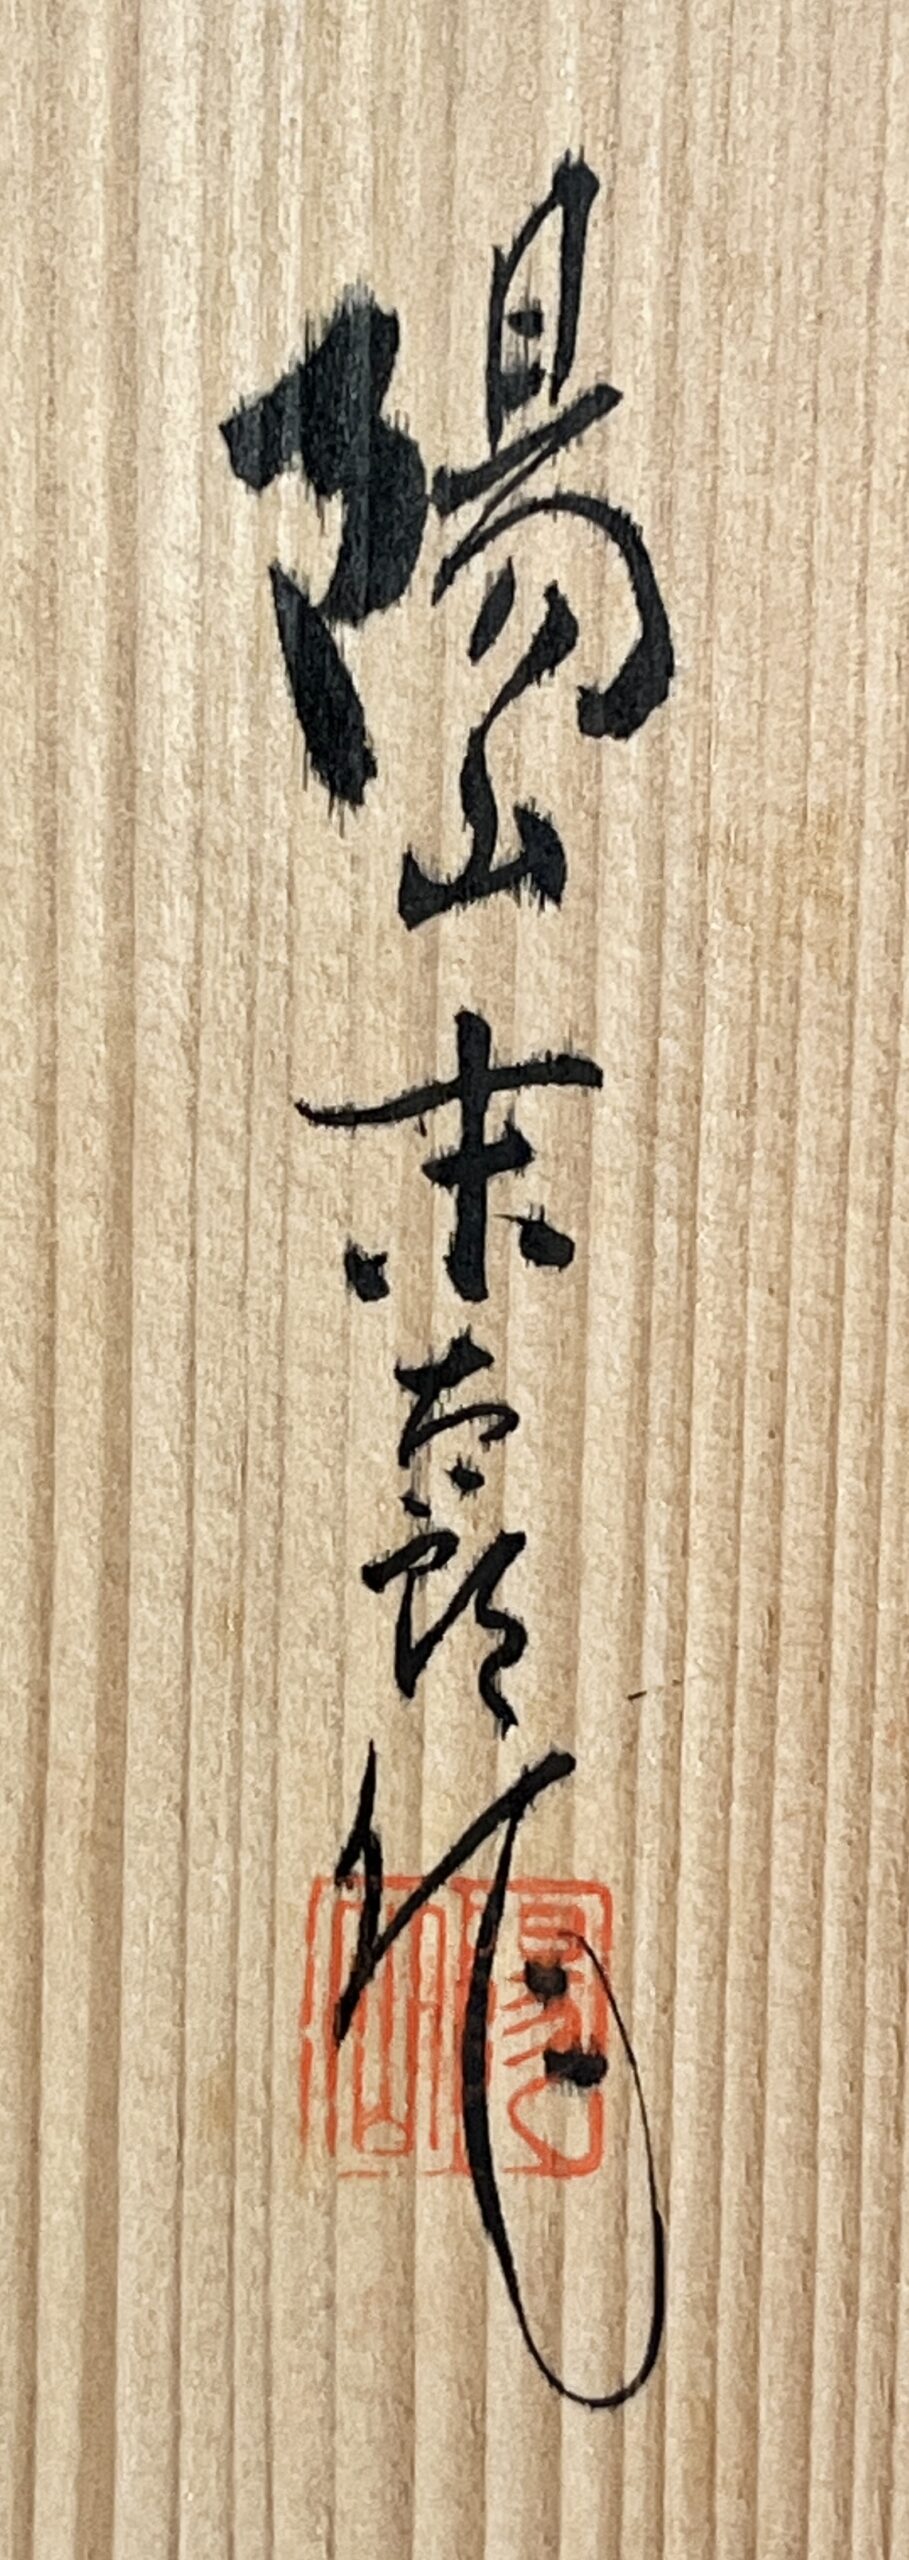 陽山末太郎作